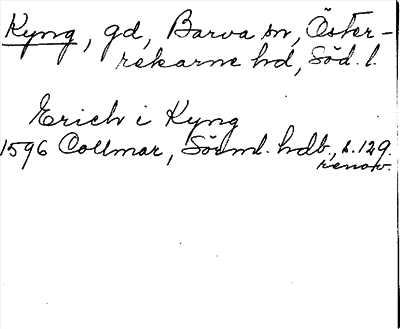 Kyng, gd, Barva sn, Öster-
rekarne hd, Söd. l.
Erich i Kyng
1596 Collmar, Sörml. hdb., s. 129.
renov.